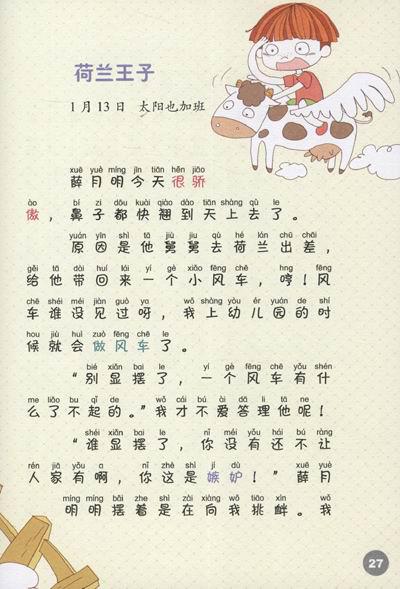 荷兰王子
1月13日 太阳也加班
xuē yuè míng jīn tiān hěn jiāo
薛月明今天很骄
ào bí zi dōu kuài qiào dào tiān shàng qù le
傲，鼻子都快翘到天上去了。
yuán yīn shì tā jiù jiu qù hé lán chū chāi
原因是他舅舅去荷兰出差，
gěi tā dài huí lái yí gè xiǎo fēng chē hng fēng
给他带回来一个小风车，哼！风
chē shéi méi jiàn guò ya wǒ shàng yòu ér yuán de shí
车谁没见过呀，我上幼儿园的时
hou jiù huì zuò fēng chē le
候就会做风车了。
bié xiǎn bai le yí gè fēng chē yǒu shén
“别显摆了，一个风车有什
me liǎo bu qǐ de wǒ cái bù ài dā li tā ne
么了不起的。”我才不爱答理他呢！
shéi xiǎn bai le nǐ méi yǒu hái bú ràng
“谁显摆了，你没有还不让
rén jiā yǒu a nǐ zhè shì jí dù xuē yuè
人家有啊，你这是嫉妒！”薛月
míng míng bǎi zhe shì zài xiàng wǒ tiǎo xìn wǒ
明明摆着是在向我挑衅。我
27